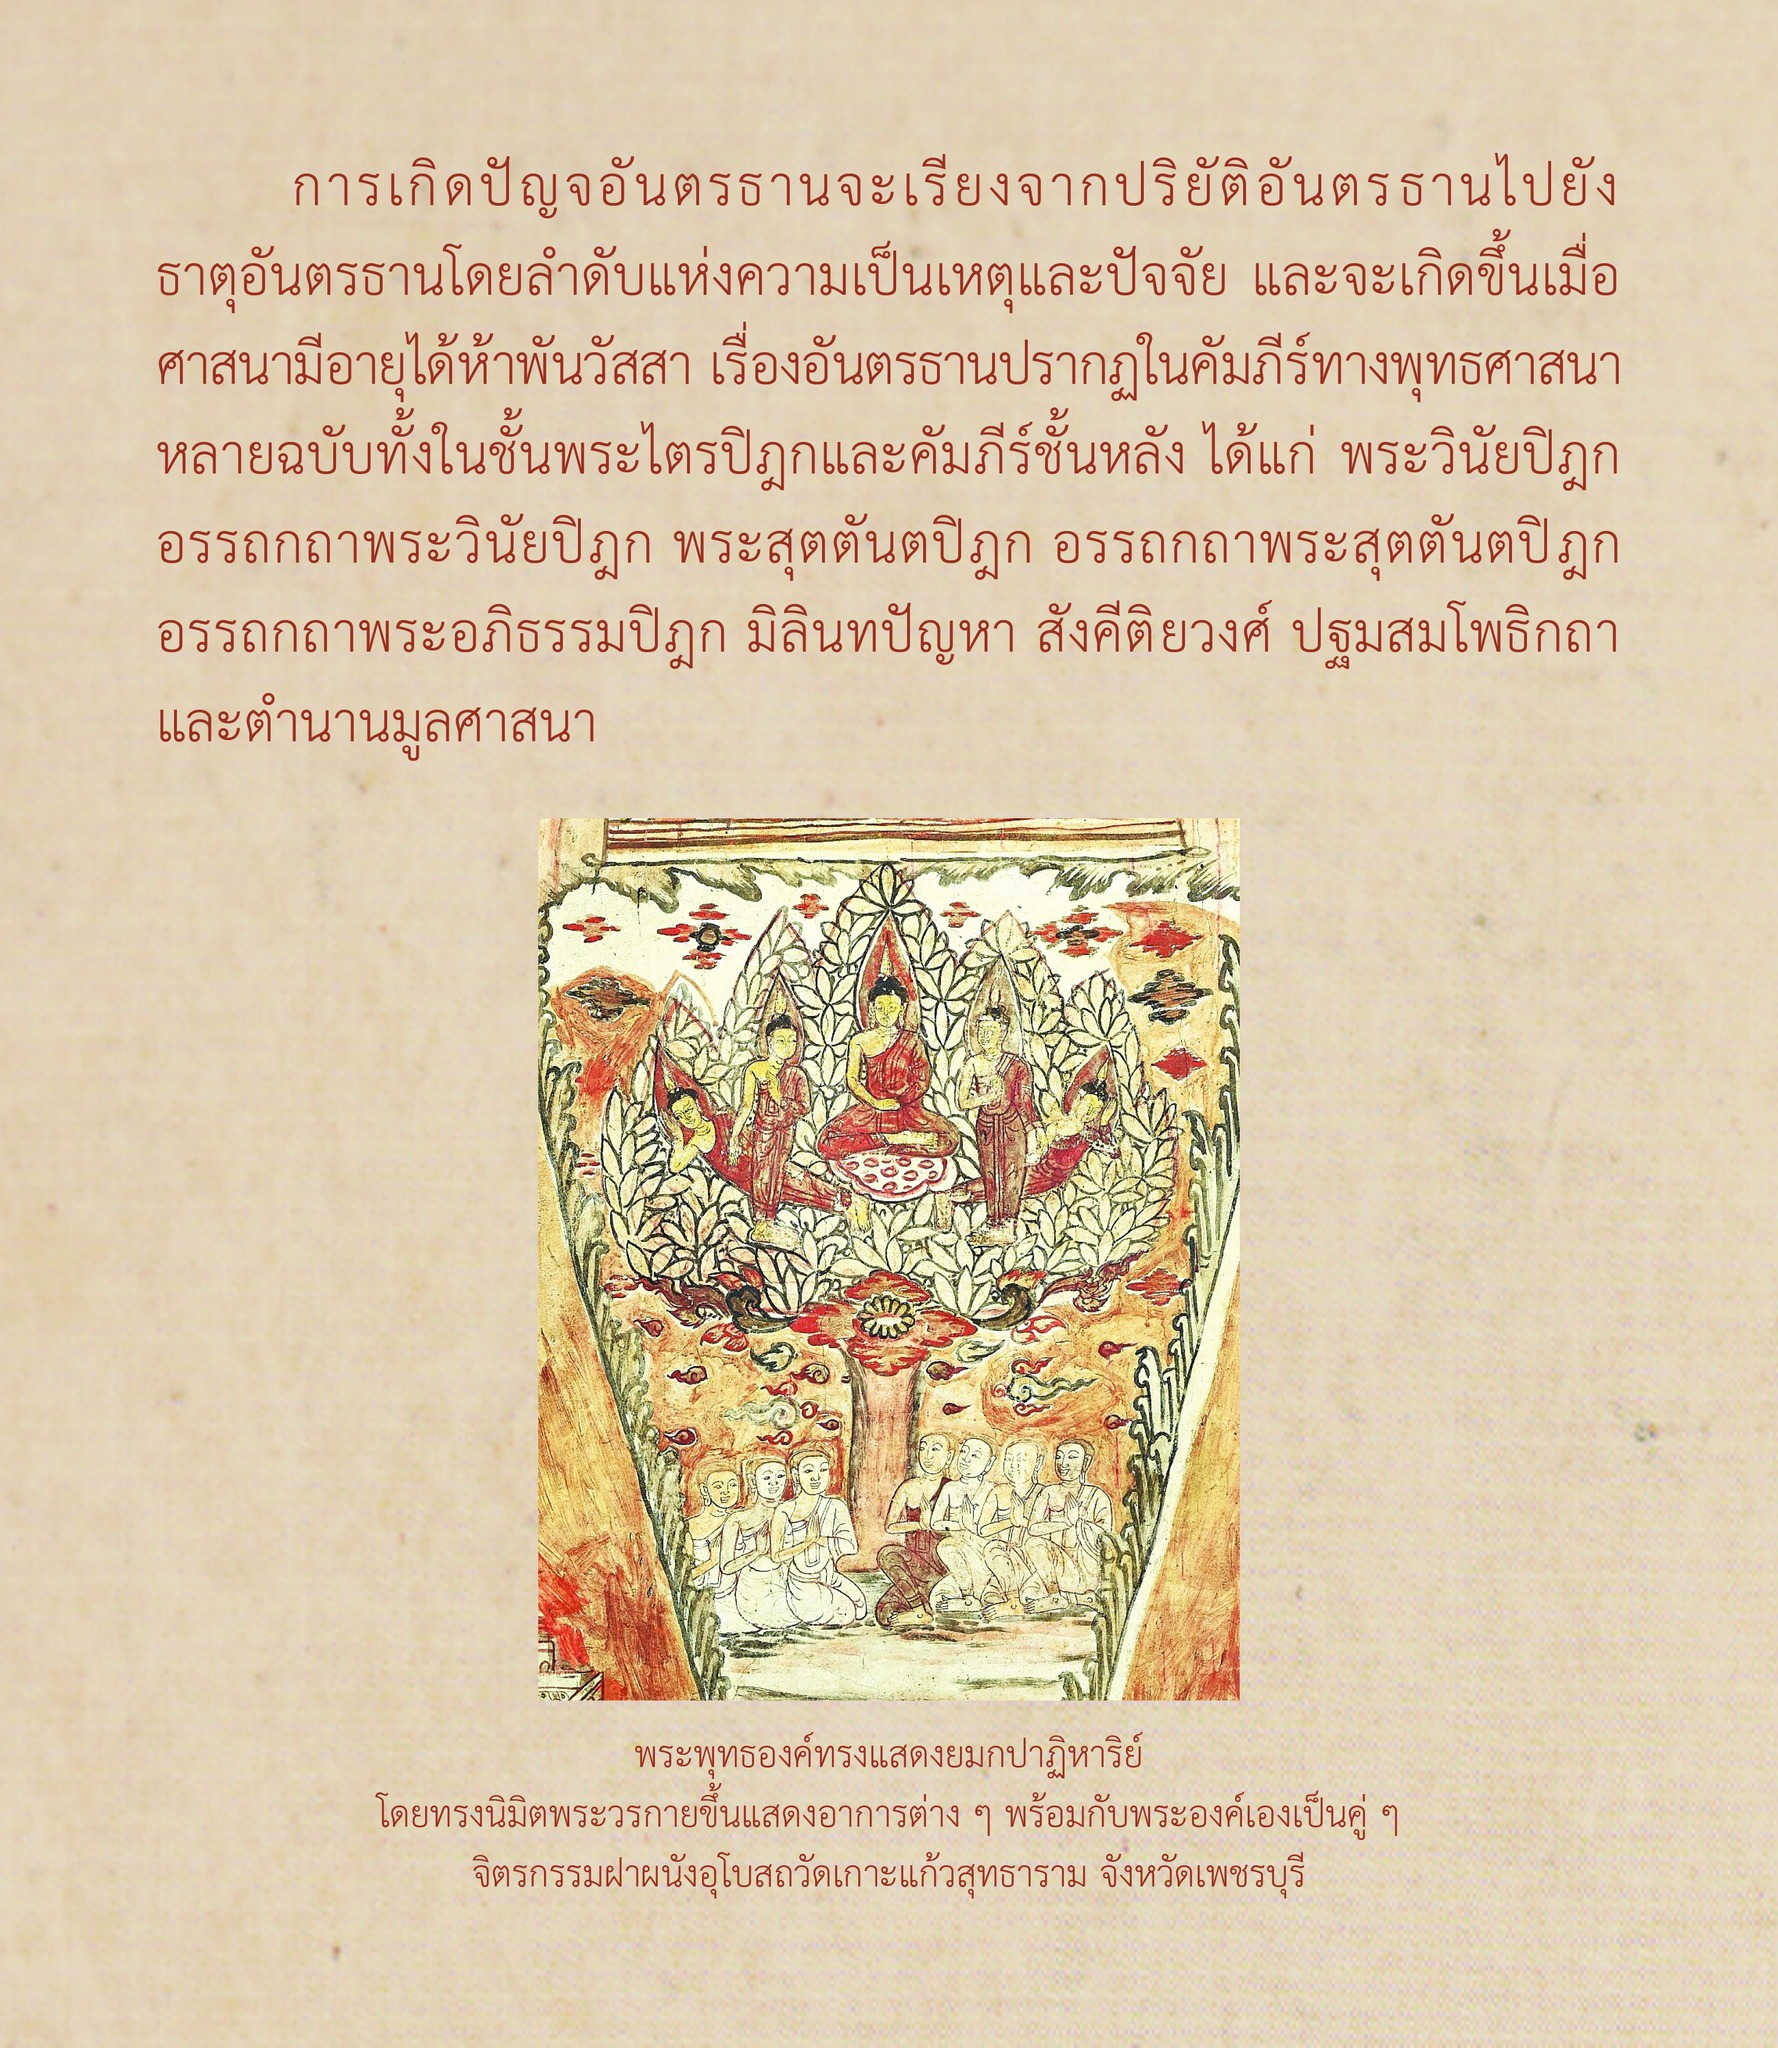 การเกิดปัญจอันตรธานจะเรียงจากปริยัติอันตรธานไปยัง
ธาตุอันตรธานโดยลำดับแห่งความเป็นเหตุและปัจจัย และจะเกิดขึ้นเมื่อ
ศาสนามีอายุได้ห้าพันวัสสา เรื่องอันตรธานปรากฏในคัมภีร์ทางพุทธศาสนา
หลายฉบับทั้งในชั้นพระไตรปิฎกและคัมภีร์ชั้นหลัง ได้แก่ พระวินัยปิฎก
อรรถกถาพระวินัยปิฎก พระสุตตันตปิฎก อรรถกถาพระสุตตันตปิฎก
อรรถกถาพระอภิธรรมปิฎก มิลินทปัญหา สังคีติยวงศ์ ปฐมสมโพธิกถา
และตำนานมูลศาสนา
พระพุทธองค์ทรงแสดงยมกปาฏิหาริย์
โดยทรงนิมิตพระวรกายขึ้นแสดงอาการต่าง ๆ พร้อมกับพระองค์เองเป็นคู่ ๆ
จิตรกรรมฝาผนังอุโบสถวัดเกาะแก้วสุทธาราม จังหวัดเพชรบุรี